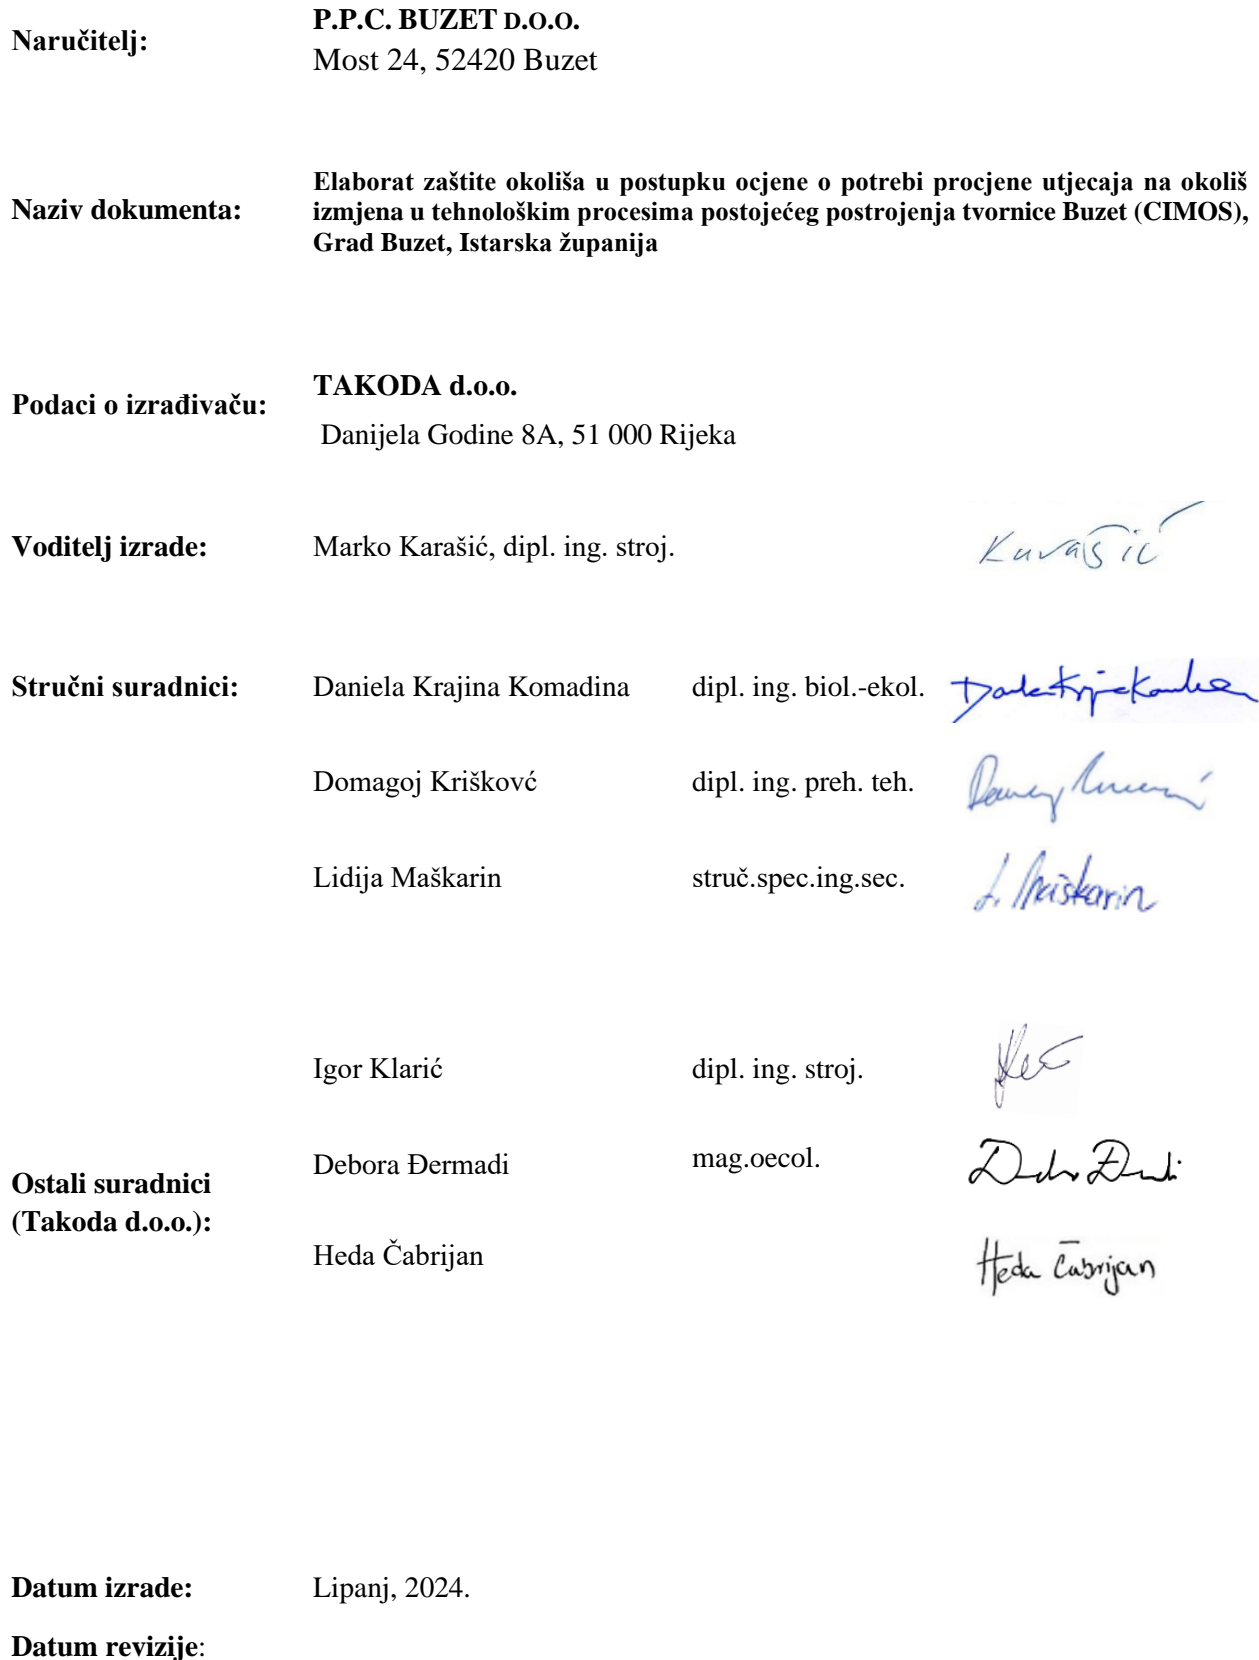 Naručitelj:
P.P.C. BUZET D.O.O.
Most 24, 52420 Buzet
Naziv dokumenta:
Elaborat zaštite okoliša u postupku ocjene o potrebi procjene utjecaja na okoliš
izmjena u tehnološkim procesima postojećeg postrojenja tvornice Buzet (CIMOS),
Grad Buzet, Istarska županija
Podaci o izrađivaču:
TAKODA d.o.o.
Danijela Godine 8A, 51 000 Rijeka
Voditelj izrade: Marko Karašić, dipl. ing. stroj. Karašić
Stručni suradnici: Daniela Krajina Komadina dipl. ing. biol.-ekol.
Domagoj Kriškovć dipl. ing. preh. teh.
Lidija Maškarin struč.spec.ing.sec. L. Maškarin
Igor Klarić dipl. ing. stroj.
Ostali suradnici
(Takoda d.o.o.):
Debora Đermadi mag.oecol.
Heda Čabrijan Heda Čabrijan
Datum izrade: Lipanj, 2024.
Datum revizije: